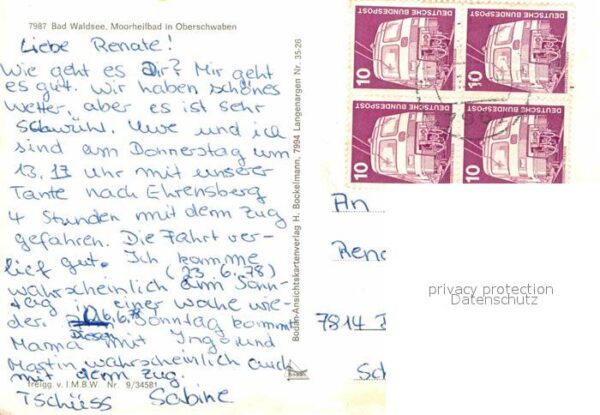 7987 Bad Waldsee, Moorheilbad in Oberschwaben
Liebe Renate!
Wie geht es Dir? Mir geht
es gut. Wir haben schönes
Wetter, aber es ist sehr
schwühl. Uwe und ich
sind am Donnerstag um
13.17 Uhr mit unserer
Tante nach Ehrensberg
4 Stunden mit dem Zug
gefahren. Die Fahrt ver-
lief gut. Ich komme
(23.6.78)
wahrscheinlich am Sonn-
tag in einer Woche wie-
der. Diesen Sonntag kommt
Mama mit Ingo und
Martin wahrscheinlich auch
mit dem Zug.
Tschüss Sabine
freigg. v. I.M.B.W. Nr. 9/34581
Bodan-Ansichtskartenverlag H. Bockelmann, 7994 Langenargen Nr. 35-26
DEUTSCHE BUNDESPOST
10
DEUTSCHE BUNDESPOST
10
DEUTSCHE BUNDESPOST
10
DEUTSCHE BUNDESPOST
10
An
Rena
7814
Sch
privacy protection
Datenschutz